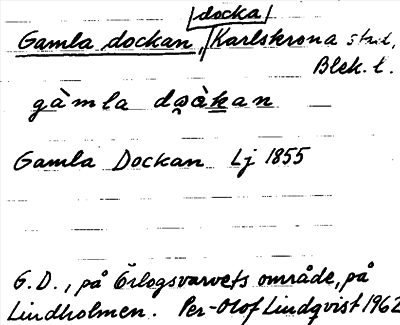 docka
Gamla dockan, Karlskrona stad,
Blek. l.
gàmla dɔ̀kan
Gamla Dockan Lj 1855
G. D., på Örlogsvarvets område, på
Lindholmen. Per-Olof Lindqvist 1962